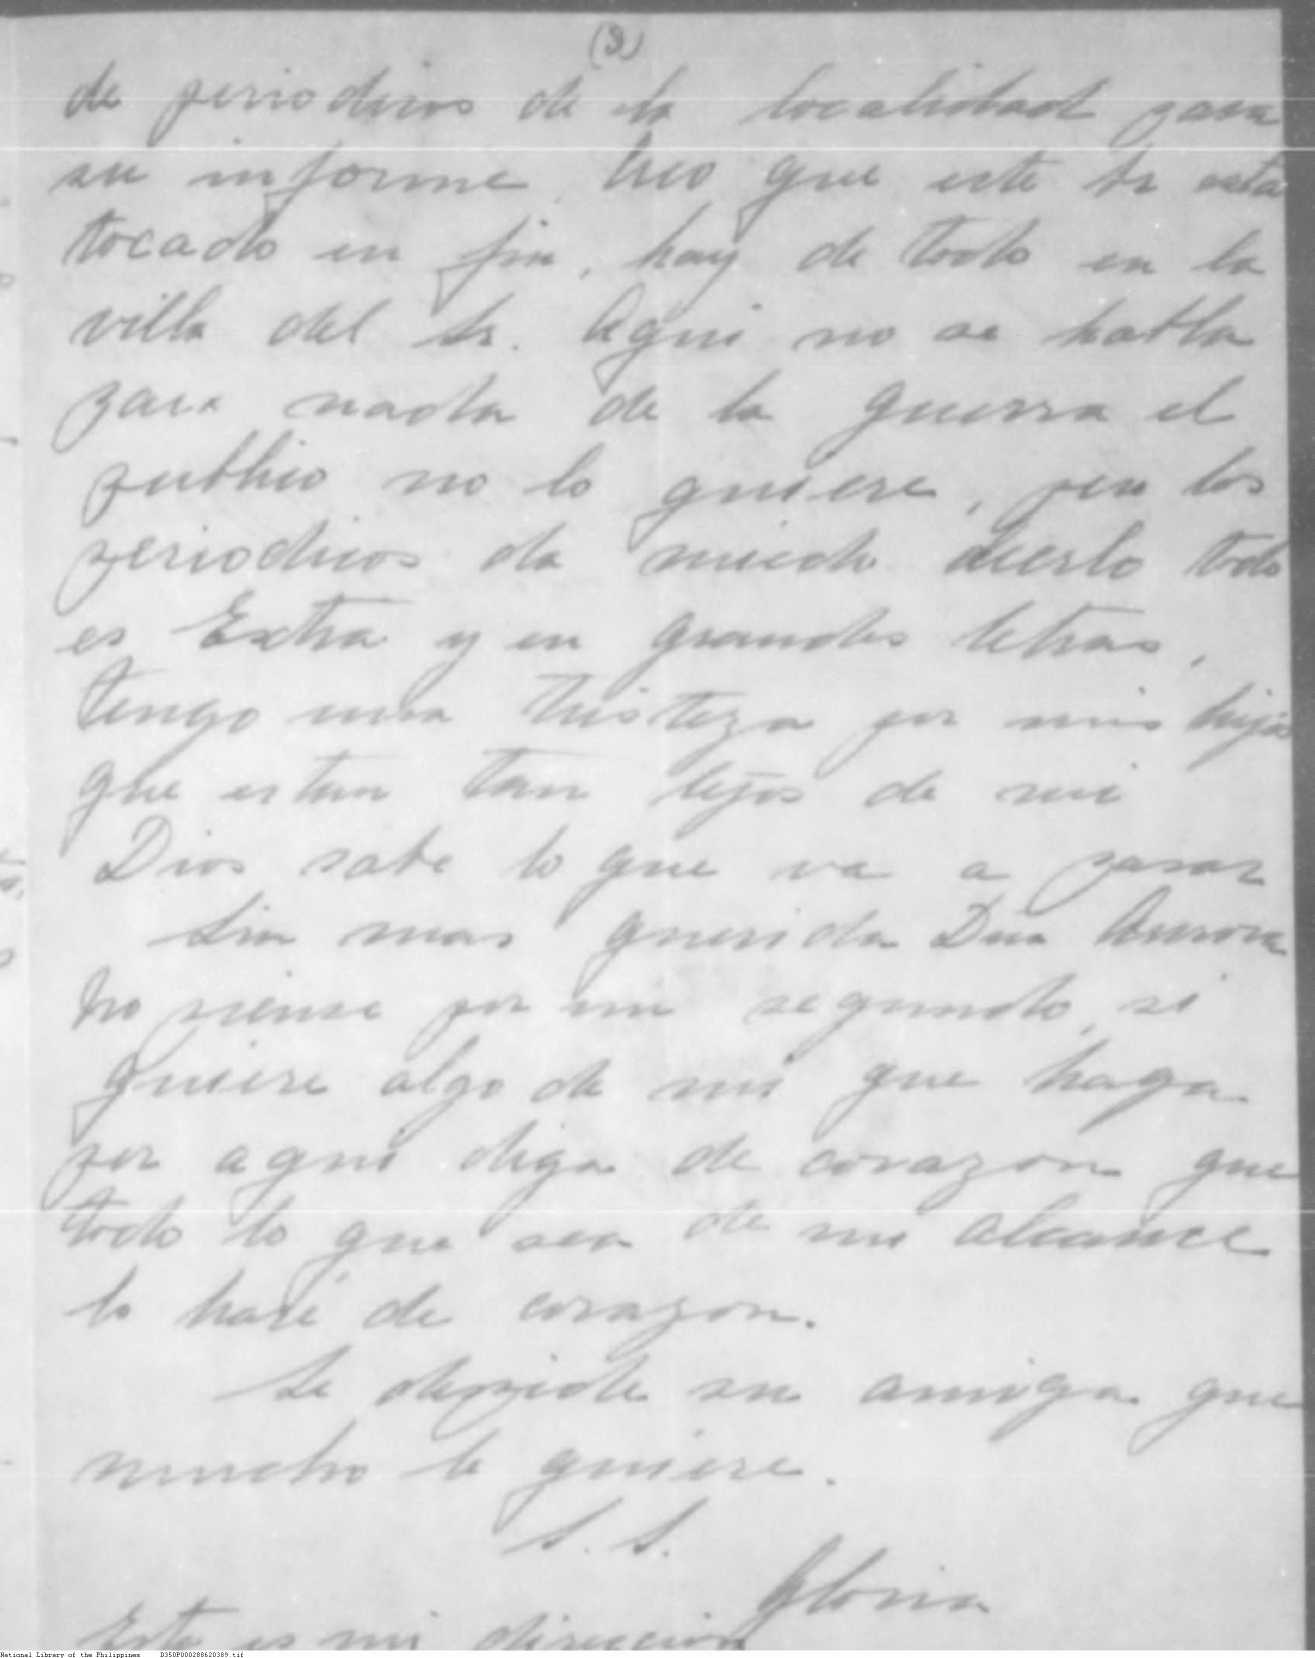 (9)
de periodicos de la localidad para
su informe. Creo que este Sr esta
tocado en fin, hay de todo en la
villa del Sr. Aqui no se habla
para nada de la guerra el
publico no lo quiere, pero los
periodicos da miedo leerlo todo
es Extra y en grandes letras,
tengo una tristeza por mis hijos
que estan tan lejos de mi
Dios sabe lo que va a pasar
Sin mas querida Dña Aurora
no piense por un segundo, si
quiere algo de mi que haga
por aqui diga de corazon que
todo lo que sea de mi alcance
lo haré de corazon.
Se despide su amiga que
mucho le quiere.
S. S.
Gloria
Esta es mi direccion
National Library of the Philippines D350P000288620389.tif